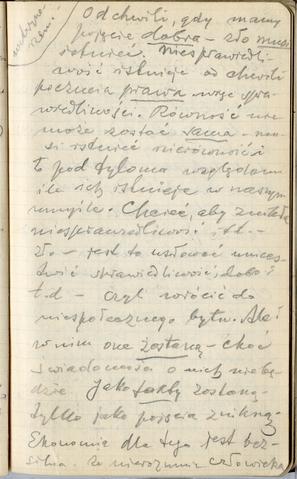 Od chwili, gdy mamy
pojęcie dobra - zło musi
istnieć. Niesprawiedli
wość istnieje od chwili
poczucia prawa wzgl. spra-
wiedliwości. Równość nie
może zostać sama - mu-
si istnieć nierówności
to pod tyloma względami
ile ich istnieje w naszym
umyśle. Chcieć, aby znikła
niesprawiedliwość itd. -
zło - jest to usiłować unice-
stwić sprawiedliwość, dobro i
t.d - czyli wrócić do
niespołecznego bytu. Ale i
w nim one zostaną - choć
świadomości o nich nie bę-
dzie. Jako fakty zostaną -
tylko jako pojęcia znikną.
Ekonomia dla tego jest bez-
silna. że nierozumie człowieka